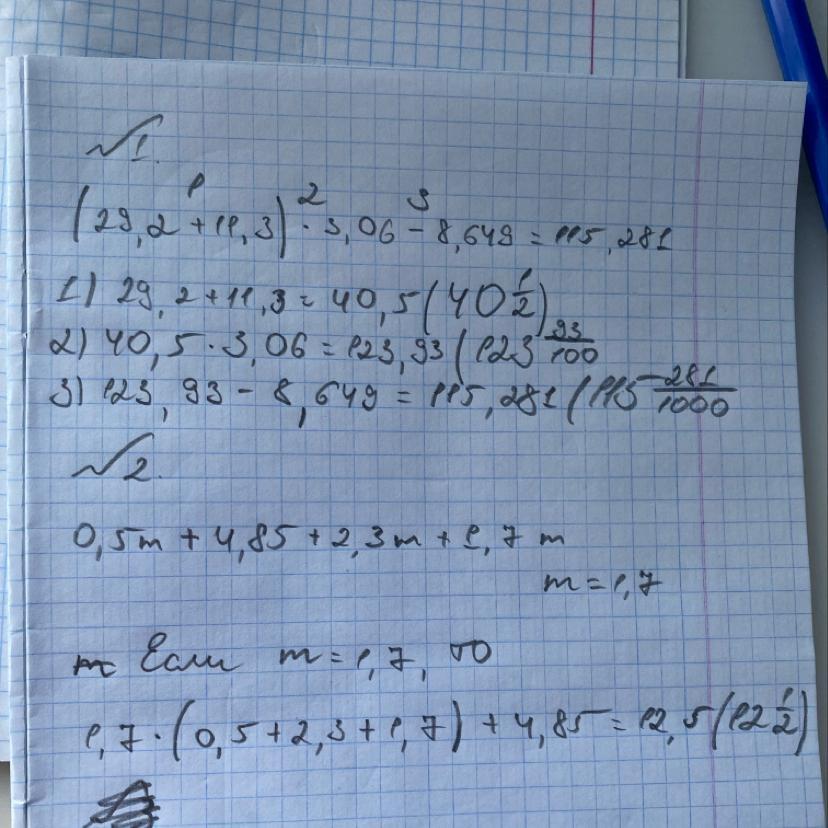 №1.
1 2 3
(29,2 + 11,3) · 3,06 - 8,649 = 115,281
1) 29,2 + 11,3 = 40,5 (40 1/2)
2) 40,5 · 3,06 = 123,93 (123 93/100
3) 123,93 - 8,649 = 115,281 (115 281/1000
№2.
0,5m + 4,85 + 2,3m + 1,7m
m = 1,7
Если m = 1,7, то
1,7 · (0,5 + 2,3 + 1,7) + 4,85 = 12,5 (12 1/2)